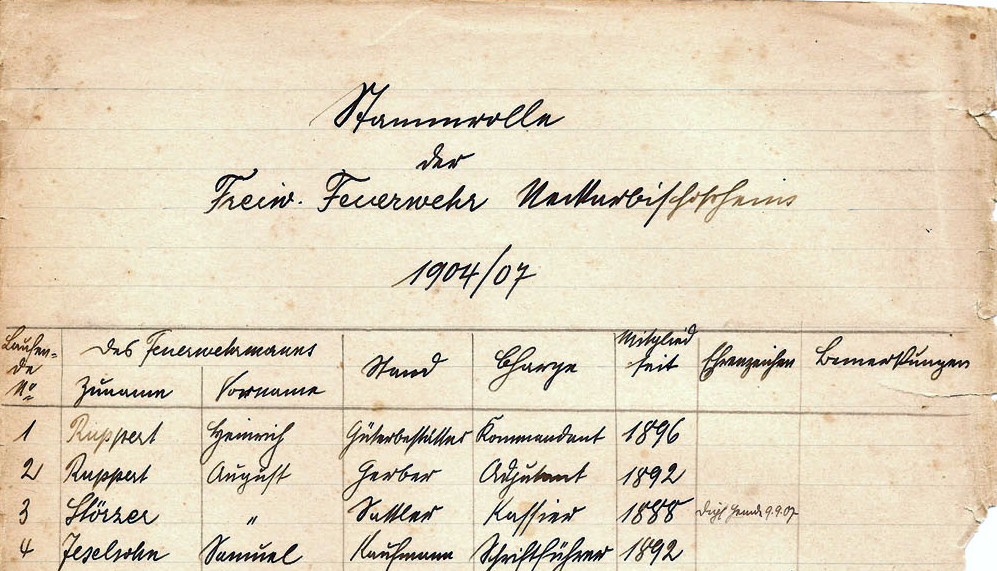 Stammrolle
der
Freiw. Feuerwehr Neckarbischofsheim
1904/07
Laufen-
de
No
Des Feuerwehrmanns
Zuname Vorname Stand Charge Mitglied seit Ehrenzeichen Bemerkungen
1 Ruppert Heinrich Güterbestätter Kommandant 1896
2 Ruppert August Gerber Adjutant 1892
3 Störzer " Sattler Kassier 1888 9.9.07
4 Jeselsohn Samuel Kaufmann Schriftführer 1892